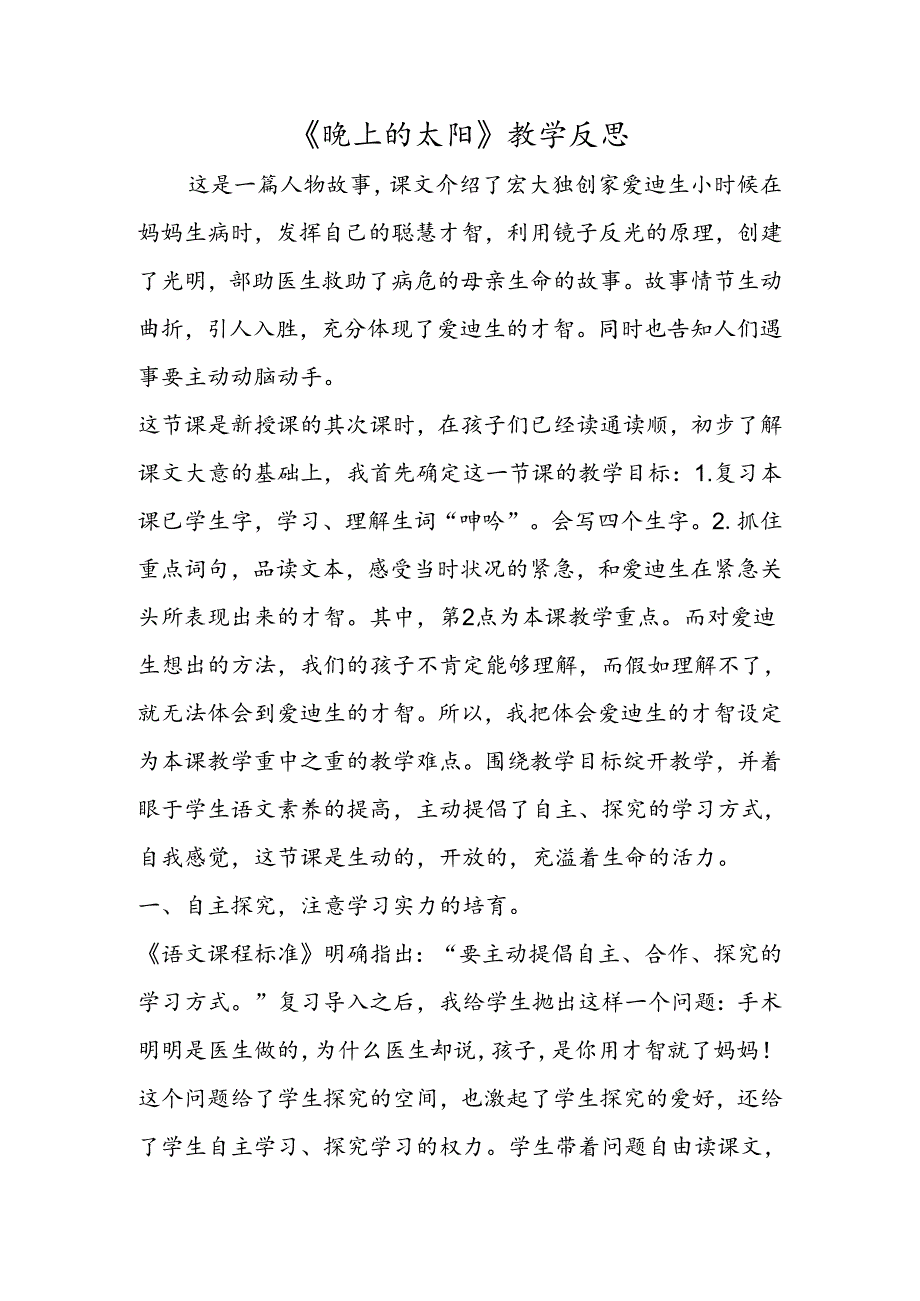 《晚上的太阳》教学反思
这是一篇人物故事，课文介绍了宏大独创家爱迪生小时候在
妈妈生病时，发挥自己的聪慧才智，利用镜子反光的原理，创建
了光明，部助医生救助了病危的母亲生命的故事。故事情节生动
曲折，引人入胜，充分体现了爱迪生的才智。同时也告知人们遇
事要主动动脑动手。
这节课是新授课的其次课时，在孩子们已经读通读顺，初步了解
课文大意的基础上，我首先确定这一节课的教学目标：1.复习本
课已学生字，学习、理解生词“呻吟”。会写四个生字。2. 抓住
重点词句，品读文本，感受当时状况的紧急，和爱迪生在紧急关
头所表现出来的才智。其中，第2点为本课教学重点。而对爱迪
生想出的方法，我们的孩子不肯定能够理解，而假如理解不了，
就无法体会到爱迪生的才智。所以，我把体会爱迪生的才智设定
为本课教学重中之重的教学难点。围绕教学目标绽开教学，并着
眼于学生语文素养的提高，主动提倡了自主、探究的学习方式，
自我感觉，这节课是生动的，开放的，充溢着生命的活力。
一、自主探究，注意学习实力的培育。
《语文课程标准》明确指出：“要主动提倡自主、合作、探究的
学习方式。”复习导入之后，我给学生抛出这样一个问题：手术
明明是医生做的，为什么医生却说，孩子，是你用才智就了妈妈！
这个问题给了学生探究的空间，也激起了学生探究的爱好，还给
了学生自主学习、探究学习的权力。学生带着问题自由读课文，